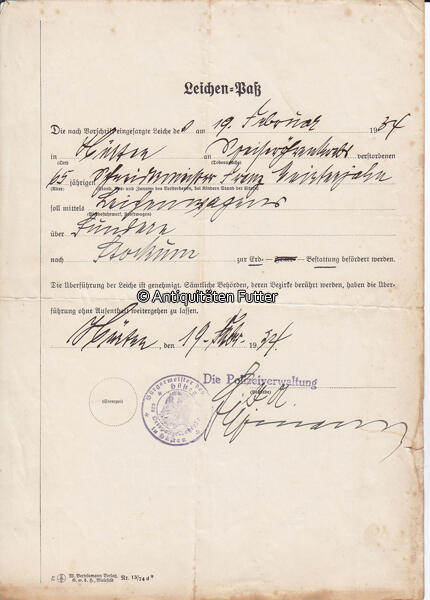 Leichen-Paß
Die nach Vorschrift eingesargte Leiche des am 19. Februar 1934
in Hüsten an Speiseröhrenkrebs verstorbenen
(Ort) (Todesursache)
65 jährigen Schreinermeister Franz
(Alter) (Stand, Vor- und Zuname des Verstorbenen, bei Kindern Stand der Eltern)
soll mittels Leichenwagens
über Sundern
nach Stockum zur Erd- Bestattung befördert werden.
Die Überführung der Leiche ist genehmigt. Sämtliche Behörden, deren Bezirke berührt werden, haben die Über-
© Antiquitäten Futter
führung ohne Aufenthalt weitergehen zu lassen.
Hüsten, den 19. Febr. 1934.
Die Polizeiverwaltung
(Behörde)
(Stempel)
Bürgermeister des
Hüsten
in Hüsten
W. Bertelsmann Verlag
G. m. b. H., Bielefeld
Nr. 13/74 d